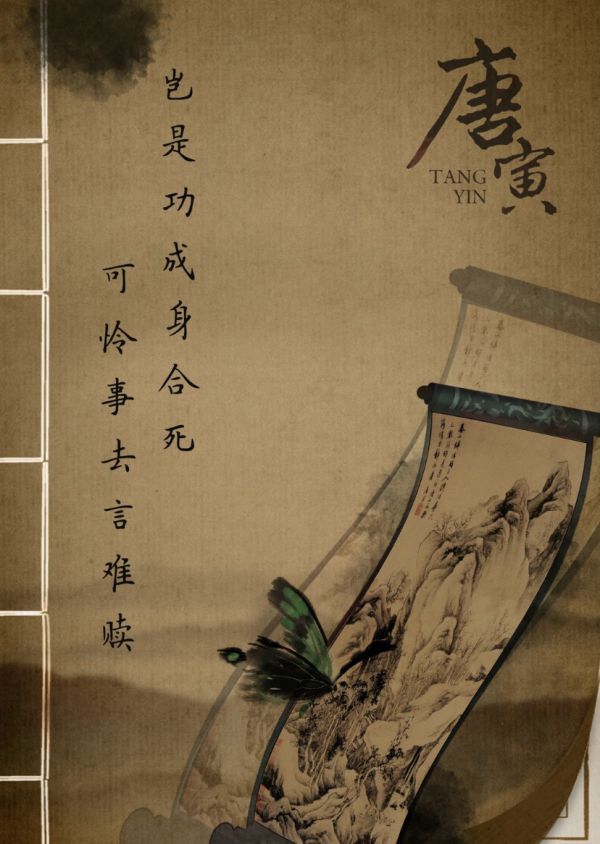 唐寅
TANG
YIN
岂是功成身合死
可怜事去言难赎